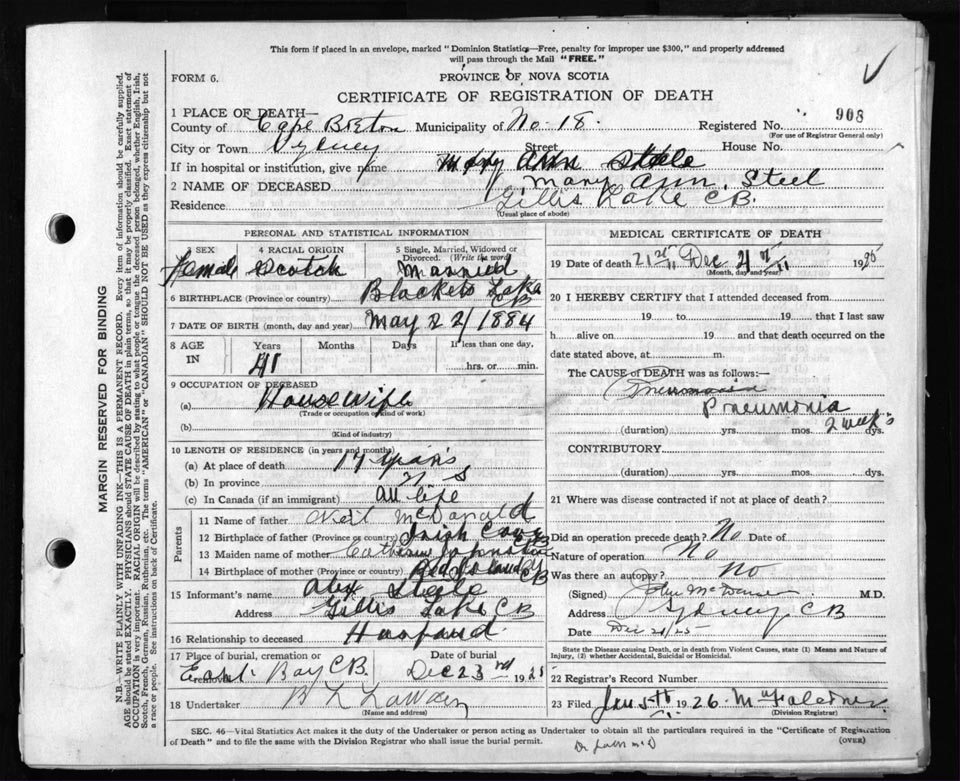 This form if placed in an envelope, marked "Dominion Statistics—Free, penalty for improper use $300," and properly addressed
will pass through the Mail "FREE."
FORM 6.
PROVINCE OF NOVA SCOTIA
CERTIFICATE OF REGISTRATION OF DEATH
908
1 PLACE OF DEATH—
County of Cape Breton Municipality of No. 18. Registered No.
(For use of Registrar General only)
City or Town Sydney Street House No.
If in hospital or institution, give name Mary Ann Steele
2 NAME OF DECEASED Mary Ann, Steel
Residence Gillis Lake C B.
(Usual place of abode)
PERSONAL AND STATISTICAL INFORMATION
3 SEX 4 RACIAL ORIGIN 5 Single, Married, Widowed or Divorced. (Write the word)
Female Scotch Married
6 BIRTHPLACE (Province or country) Blacketts Lake CB
7 DATE OF BIRTH (month, day and year) May 22/1884
8 AGE IN Years Months Days If less than one day,
41 hrs. or min.
9 OCCUPATION OF DECEASED
(a) Housewife
(Trade or occupation or kind of work)
(b)
(Kind of industry)
10 LENGTH OF RESIDENCE (in years and months)
(a) At place of death 17 years
(b) In province
(c) In Canada (if an immigrant) all life
Parents
11 Name of father Neil McDonald
12 Birthplace of father (Province or country) Irish Cove CB
13 Maiden name of mother Catherine Johnston
14 Birthplace of mother (Province or country) Red Islands CB
15 Informant's name Alex Steele
Address Gillis Lake C B
16 Relationship to deceased Husband
17 Place of burial, cremation or removal Date of burial
East Bay C B. Dec 23rd 1925
18 Undertaker
(Name and address)
MEDICAL CERTIFICATE OF DEATH
19 Date of death 21st Dec 19
(Month, day and year)
20 I HEREBY CERTIFY that I attended deceased from
19 to 19 that I last saw
h alive on 19 and that death occurred on the
date stated above, at m.
The CAUSE of DEATH was as follows:
Pneumonia
Pneumonia
(duration) yrs. mos. 2 weeks dys.
CONTRIBUTORY
(duration) yrs. mos. dys.
21 Where was disease contracted if not at place of death?
Did an operation precede death? No Date of
Nature of operation No
Was there an autopsy? No
(Signed) John M.D.
Address Sydney C B
Date Dec 21/25
State the Disease causing Death, or in death from Violent Causes, state (1) Means and Nature of
Injury, (2) whether Accidental, Suicidal or Homicidal.
22 Registrar's Record Number
23 Filed Jan 5th 1926.
(Division Registrar)
SEC. 46—Vital Statistics Act makes it the duty of the Undertaker or person acting as Undertaker to obtain all the particulars required in the "Certificate of Registration
of Death" and to file the same with the Division Registrar who shall issue the burial permit. (OVER)
MARGIN RESERVED FOR BINDING
N.B.—WRITE PLAINLY WITH UNFADING INK—THIS IS A PERMANENT RECORD. Every item of information should be carefully supplied.
AGE should be stated EXACTLY. PHYSICIANS should STATE CAUSE OF DEATH in plain terms, so that it may be properly classified. Exact statement of
OCCUPATION is very important. RACIAL ORIGIN will be described by stating to what people or tongue the deceased person belonged, whether English, Irish,
Scotch, French, German, Russian, Ruthenian, etc. The terms "AMERICAN" or "CANADIAN" SHOULD NOT BE USED as they express citizenship but not
a race or people. See instructions on back of Certificate.